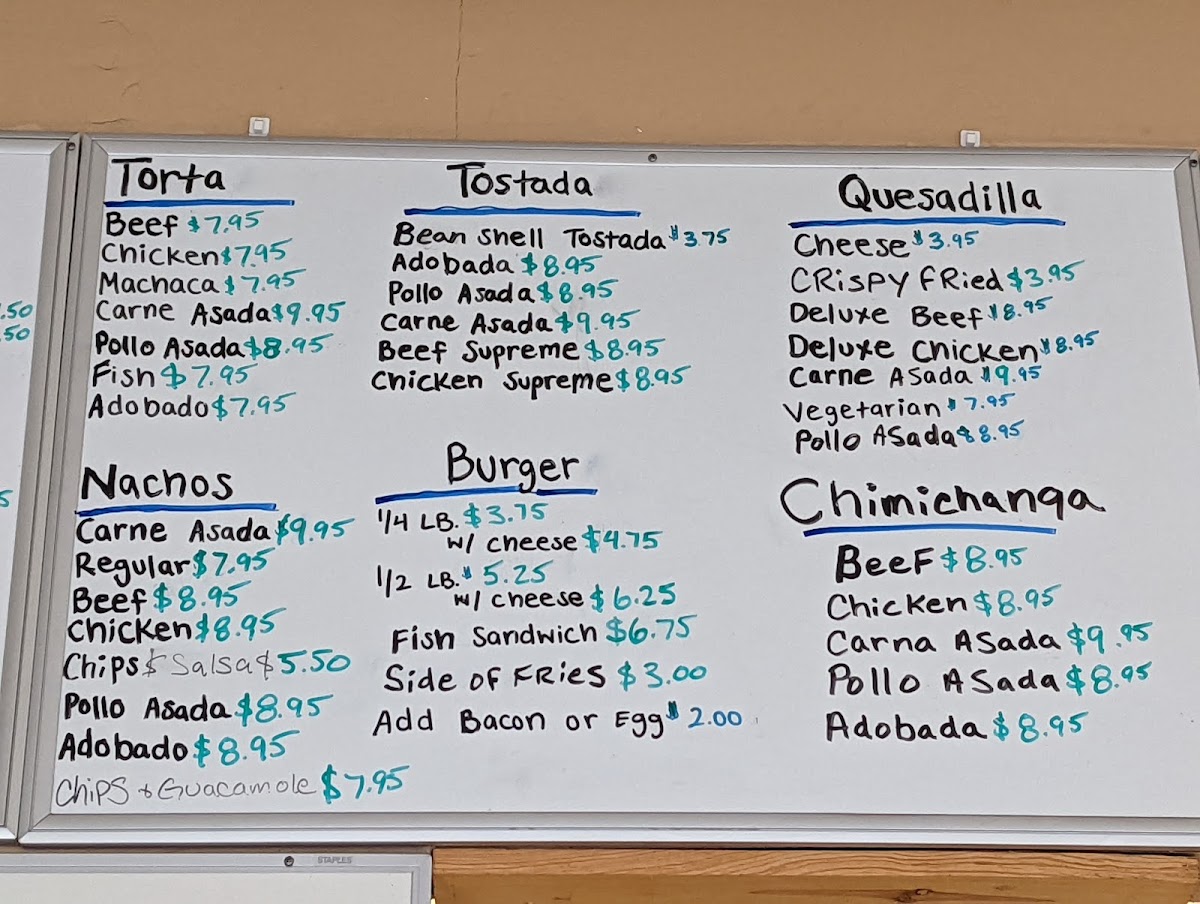 .50
.50
5
Torta
Beef $7.95
Chicken $7.95
Machaca $7.95
Carne Asada $9.95
Pollo Asada $8.95
Fish $7.95
Adobado $7.95
Nachos
Carne Asada $9.95
Regular $7.95
Beef $8.95
Chicken $8.95
Chips & Salsa $5.50
Pollo Asada $8.95
Adobado $8.95
Chips + Guacamole $7.95
Tostada
Bean shell Tostada $3.75
Adobada $8.95
Pollo Asada $8.95
Carne Asada $9.95
Beef Supreme $8.95
Chicken Supreme $8.95
Burger
1/4 LB. $3.75
w/ cheese $4.75
1/2 LB. $5.25
w/ cheese $6.25
Fish Sandwich $6.75
Side of FRies $3.00
Add Bacon or Egg $2.00
Quesadilla
Cheese $3.95
CRispy FRied $3.95
Deluxe Beef $8.95
Deluxe Chicken $8.95
Carne Asada $9.95
Vegetarian $7.95
Pollo Asada $8.95
Chimichanga
Beef $8.95
Chicken $8.95
Carna Asada $9.95
Pollo Asada $8.95
Adobada $8.95
STAPLES